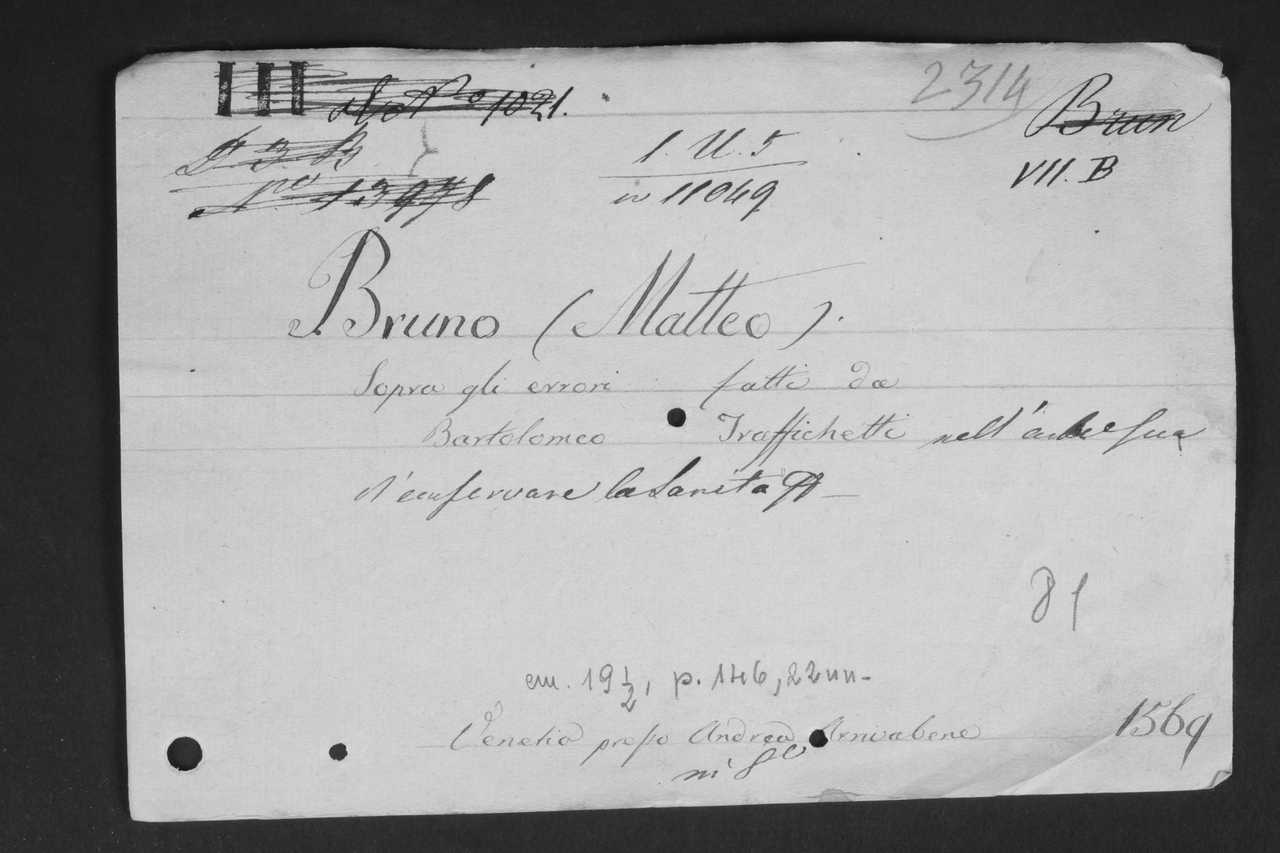 III N.º 1021.
2314
Brun
1. U. 5
VII. B
nº 11049
Nº 13978
Bruno (Matteo).
Sopra gli errori fatti da
Bartolomeo Traffichetti nell'arte sua
d'conservare la Sanità
81
cm. 19 1/2, p. 146, 22 nn-
Venetia presso Andrea Arrivabene 1569
in 8º